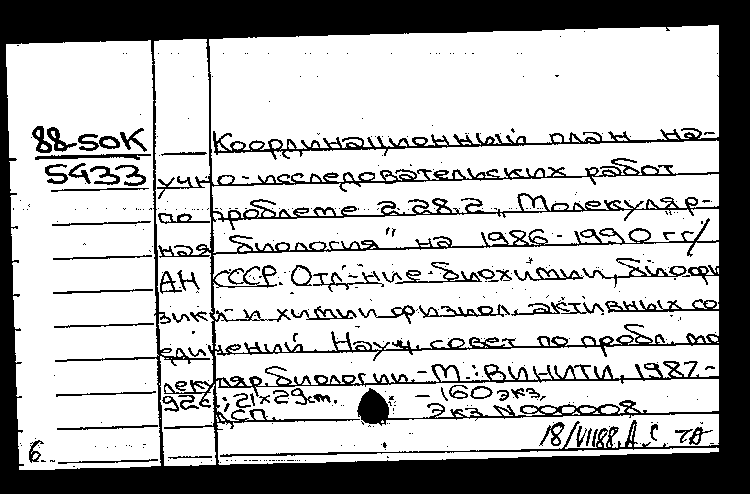 88-50K Координационный план на-
5433 учно-исследовательских работ
по проблеме 2.28.2 „Молекуляр-
ная биология" на 1986-1990 гг/
АН СССР. Отд-ние биохимии, биофи
зики и химии физиол. активных со
единений. Науч. совет по пробл. мо
лекуляр. биологии.-М.: ВИНИТИ, 1987.-
92с.; 21×29см. - 160 экз.
ДСП. Экз. N000008.
18/VII88. А.С.
6